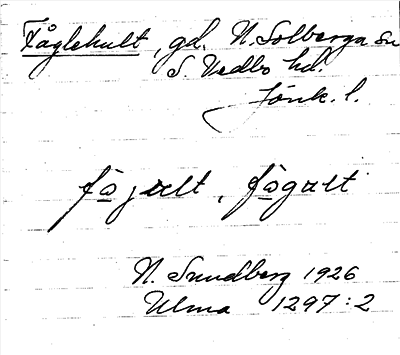 Fåglehult, gd. N. Solberga sn
S. Vedbo hd.
Jönk. l.
fo̲jult, fo̲gult
N. Sundberg 1926
Ulma 1297:2